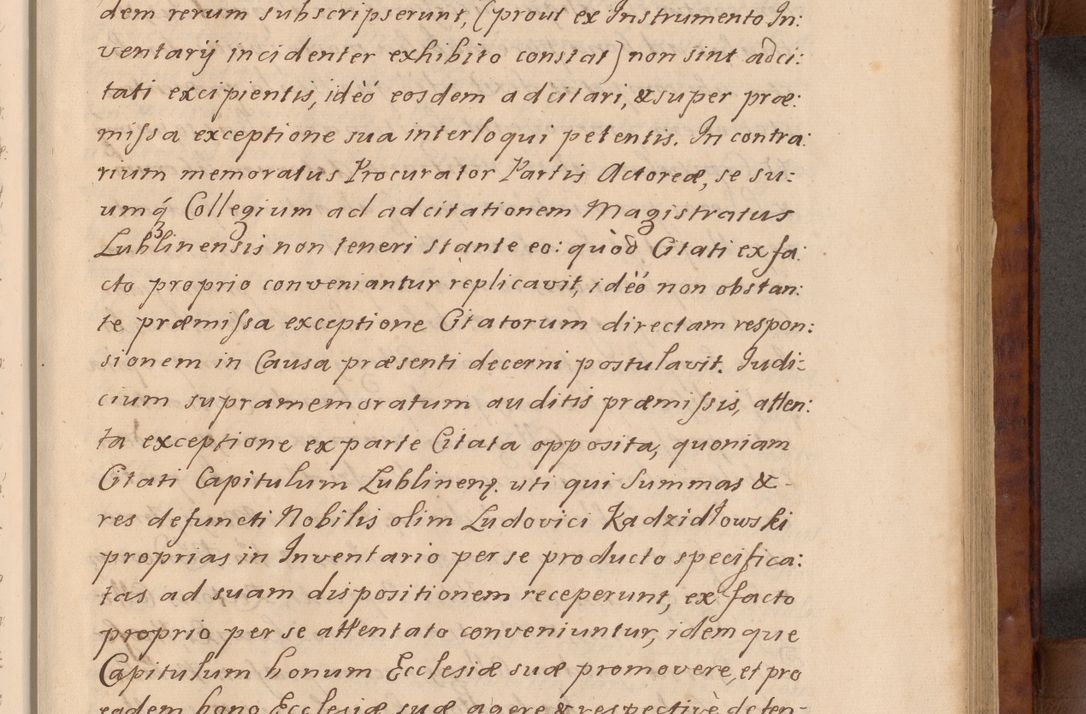 dem rerum subscripserunt, (prout ex Instrumento In:
ventarÿ incidenter exhibito constat) non sint adci:
tati excipientis, idèó eosdem adcitari, & super præ:
missa exceptione sua interloqui petentis. In contra:
rium memoratus Procurator Partis Actoreæ, se su:
umq́ Collegium ad adcitationem Magistratus
Lublinensis non teneri stante eo: quòd Citati ex fa:
cto proprio conveniantur replicavit, idèó non obstan:
te præmissa exceptione Citatorum directam respon:
sionem in Causa præsenti decerni postulavit. Iudi:
cium supramemoratum auditis præmissis, atten:
ta exceptione ex parte Citata opposita, quoniam
Citati Capitulum Lublinenꝫ. uti qui Summas & -
res defuncti Nobilis olim Ludovici Kadzidłowski
proprias in Inventario per se producto specifica:
tas ad suam dispositionem receperunt, ex facto
proprio per se attentato conveniuntur, idemque
Capitulum bonum Ecclesiæ suæ promovere, et pro
eadem bono Ecclesiæ suæ agere & respectivè defen-